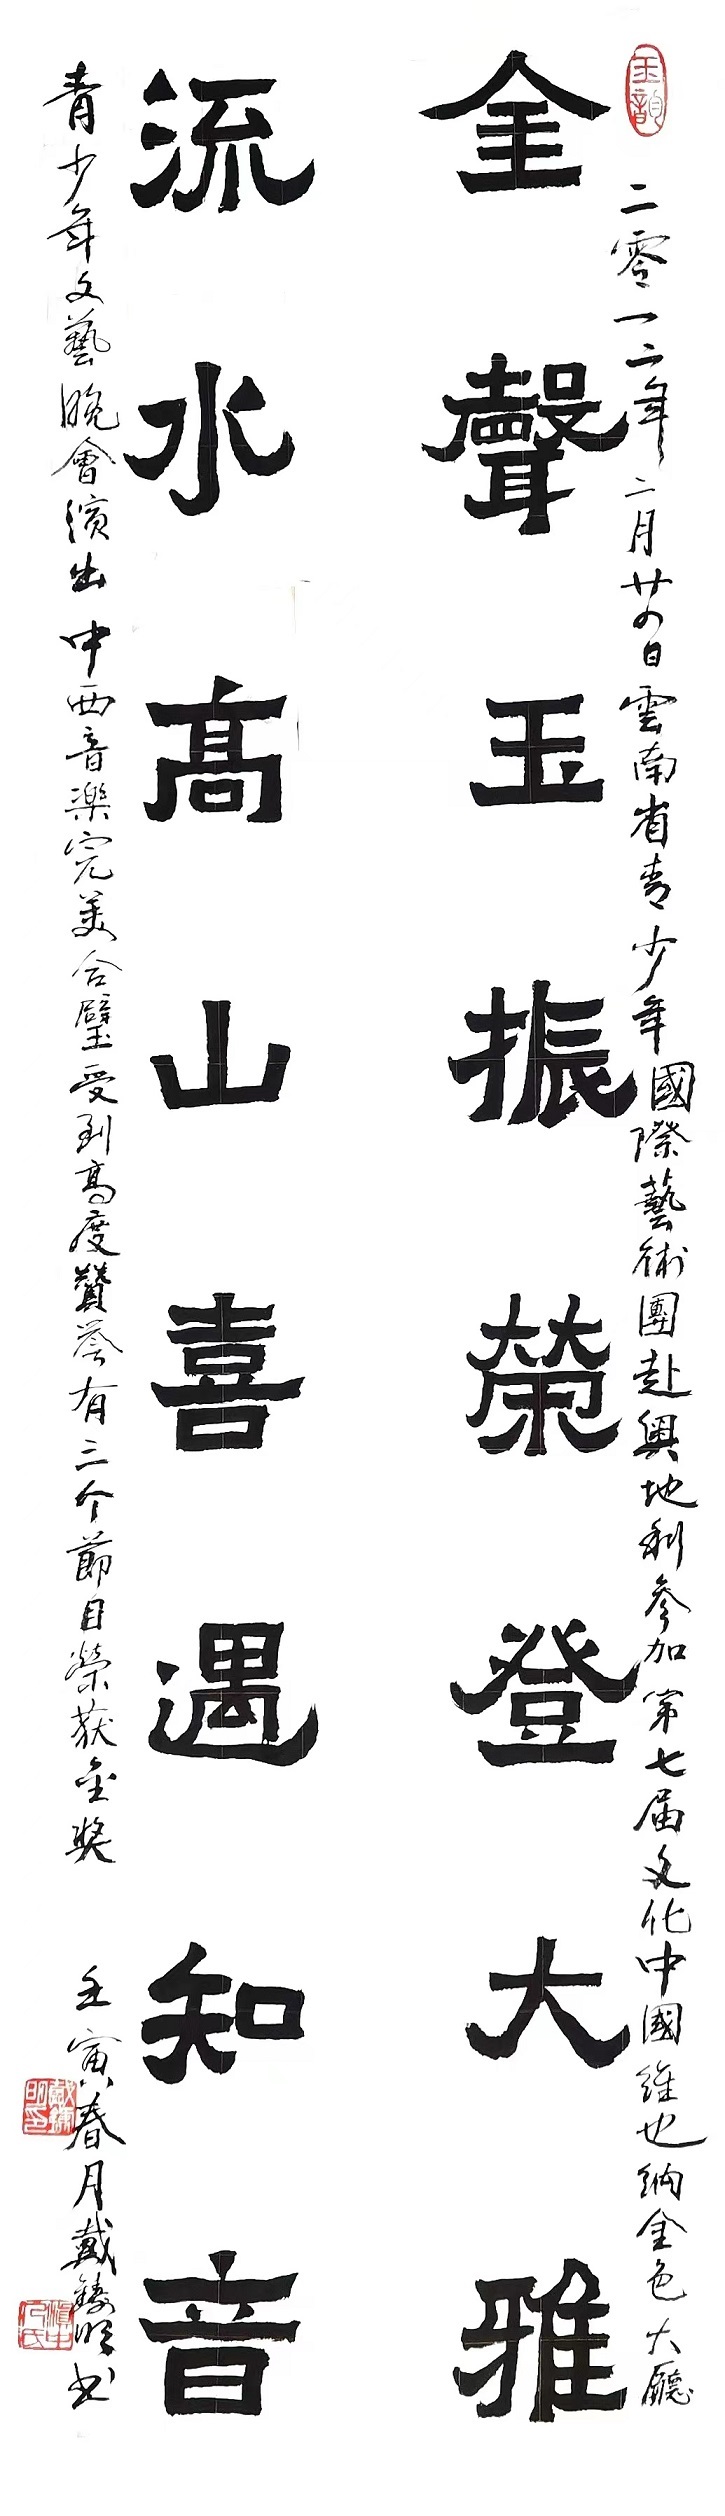 二零一二年二月廿四日雲南省青少年國際藝術團赴奧地利參加第七届文化中國維也納金色大廳
全聲玉振榮登大雅
流水高山喜遇知音
青少年文藝晚會演出中西音楽完美合璧受到高度贊誉有三个節目榮获金奖 壬寅春月戴鑄明书
戴鑄明印